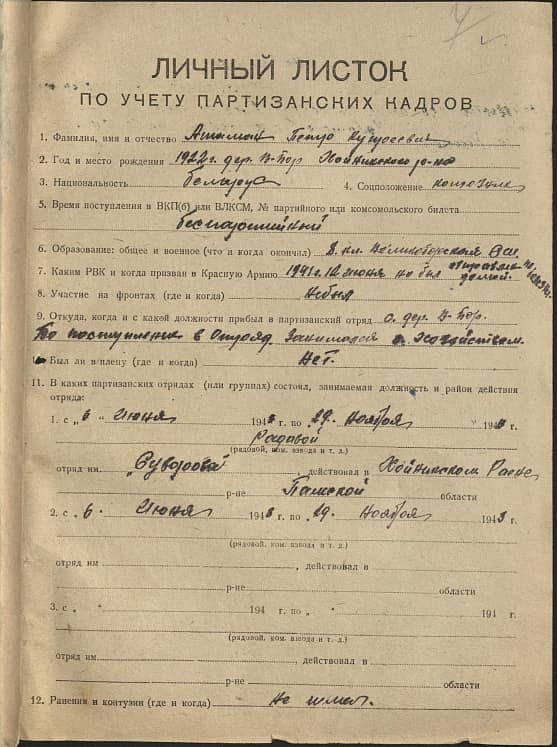 ЛИЧНЫЙ ЛИСТОК
ПО УЧЕТУ ПАРТИЗАНСКИХ КАДРОВ
1. Фамилия, имя и отчество Петро
2. Год и место рождения 1922 г. дер. В-Бор Хойникского р-на
3. Национальность беларус 4. Соцположение колхозник
5. Время поступления в ВКП(б) или ВЛКСМ, № партийного или комсомольского билета
беспартийный
6. Образование: общее и военное (что и когда окончил) 8. кл. Великоборская
7. Каким РВК и когда призван в Красную Армию 1941 г. 12 июня но был отправлен домой.
8. Участие на фронтах (где и когда) небыл
9. Откуда, когда и с какой должности прибыл в партизанский отряд с. дер. В-Бор.
До поступления в Отряд. Занимался с. Хозяйством.
10. Был ли в плену (где и когда) нет.
11. В каких партизанских отрядах (или группах) состоял, занимаемая должность и район действия
отряда:
1. с „ 6 Июня 1943 г. по „ 29. Ноября 1943 г.
Радовой
(рядовой, ком. взвода и т. д.)
отряд им. „Суворова" , действовал в Хойникском Районе
р-не области
2. с „ 6. Июня 1943 г. по „ 29 Ноября 1943 г.
(рядовой, ком. взвода и т. д.)
отряд им , действовал в
р-не области
3. с „ " 194 г. по „ " 194 г.
(рядовой, ком. взвода и т. д.)
отряд им. , действовал в
р-не области
12. Ранения и контузии (где и когда) Не имел.